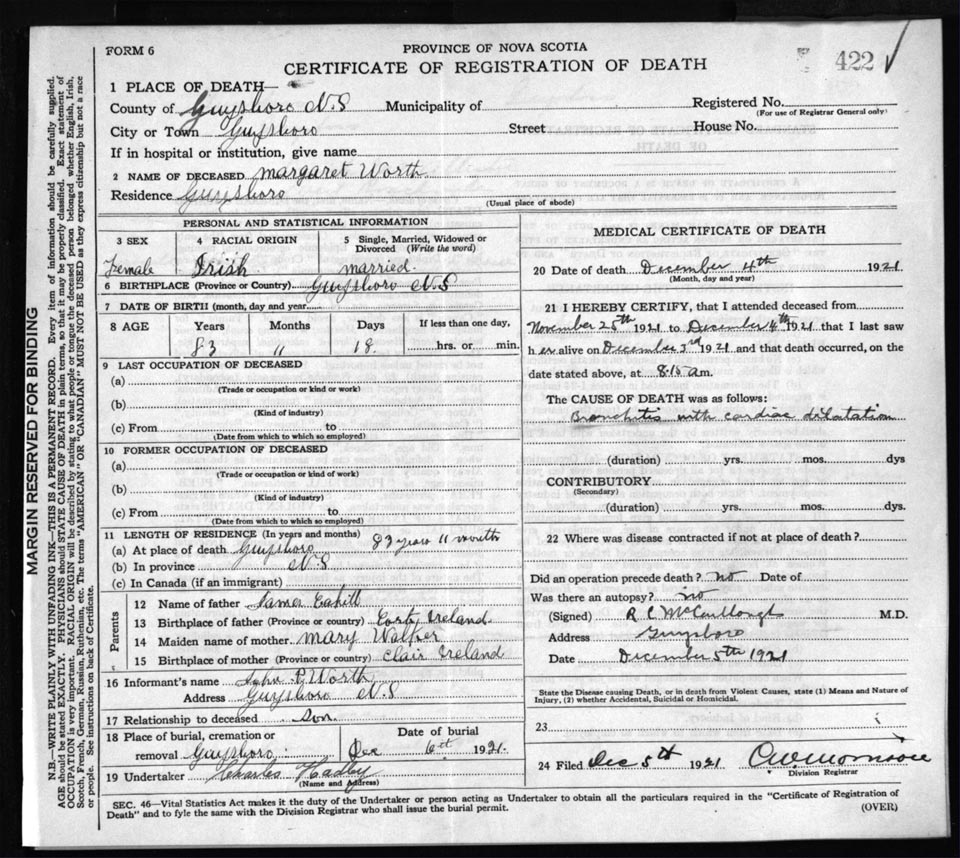 FORM 6
PROVINCE OF NOVA SCOTIA
CERTIFICATE OF REGISTRATION OF DEATH
422 ✓
1 PLACE OF DEATH—
County of Guysboro N.S Municipality of
Registered No.
(For use of Registrar General only)
City or Town Guysboro Street House No.
If in hospital or institution, give name
2 NAME OF DECEASED Margaret Worth
Residence Guysboro
(Usual place of abode)
PERSONAL AND STATISTICAL INFORMATION
3 SEX 4 RACIAL ORIGIN 5 Single, Married, Widowed or Divorced (Write the word)
Female Irish married.
6 BIRTHPLACE (Province or Country) Guysboro N.S
7 DATE OF BIRTH (month, day and year
8 AGE Years Months Days If less than one day,
83 11 18. hrs. or min.
9 LAST OCCUPATION OF DECEASED
(a)
(Trade or occupation or kind or work)
(b)
(Kind of industry)
(c) From to
(Date from which to which so employed)
10 FORMER OCCUPATION OF DECEASED
(a)
(Trade or occupation or kind of work)
(b)
(Kind of industry)
(c) From to
(Date from which to which so employed)
11 LENGTH OF RESIDENCE (In years and months)
(a) At place of death Guysboro 83 years 11 months
(b) In province N.S
(c) In Canada (if an immigrant)
Parents
12 Name of father James
13 Birthplace of father (Province or country) Ireland.
14 Maiden name of mother Mary
15 Birthplace of mother (Province or country) Clair Ireland
16 Informant's name John P. Worth
Address Guysboro N.S
17 Relationship to deceased Son.
18 Place of burial, cremation or Date of burial
removal Guysboro. Dec 6th 1921.
19 Undertaker Charles Hadley
(Name and Address)
MEDICAL CERTIFICATE OF DEATH
20 Date of death December 4th 1921
(Month, day and year)
21 I HEREBY CERTIFY, that I attended deceased from
November 25th 1921 to December 4th 1921 that I last saw
h er alive on December 3rd 1921 and that death occurred, on the
date stated above, at 8.15 a m.
The CAUSE OF DEATH was as follows:
Bronchitis with cardiac dilatation
(duration) yrs. mos. dys
CONTRIBUTORY
(Secondary)
(duration) yrs. mos. dys.
22 Where was disease contracted if not at place of death?
Did an operation precede death? no Date of
Was there an autopsy? no
(Signed) R C McCullough M.D.
Address Guysboro
Date December 5th 1921
State the Disease causing Death, or in death from Violent Causes, state (1) Means and Nature of
Injury, (2) whether Accidental, Suicidal or Homicidal.
23
24 Filed Dec 5th 1921
Division Registrar
SEC. 46—Vital Statistics Act makes it the duty of the Undertaker or person acting as Undertaker to obtain all the particulars required in the "Certificate of Registration of
Death" and to fyle the same with the Division Registrar who shall issue the burial permit. (OVER)
MARGIN RESERVED FOR BINDING
N.B.—WRITE PLAINLY WITH UNFADING INK—THIS IS A PERMANENT RECORD. Every item of information should be carefully supplied.
AGE should be stated EXACTLY. PHYSICIANS should STATE CAUSE OF DEATH in plain terms, so that it may be properly classified. Exact statement of
OCCUPATION is very important. RACIAL ORIGIN will be described by stating to what people or tongue the deceased person belonged whether English, Irish,
Scotch, French, German, Russian, Ruthenian, etc. The terms "AMERICAN" OR "CANADIAN" MUST NOT BE USED as they express citizenship but not a race
or people. See instructions on back of Certificate.